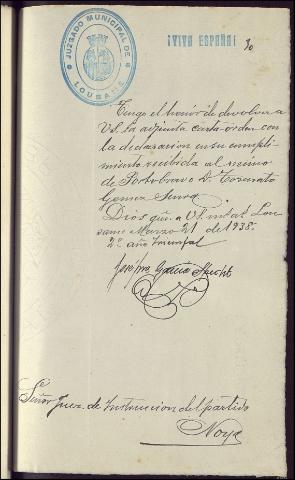 JUZGADO MUNICIPAL DE
LOUSAME
¡VIVA ESPAÑA!
Tengo el honor de devolver a
V.S. la adjunta carta-orden con
la declaracion en su cumpli-
miento recibida al vecino
de Portobravo D.
Gomez
Dios gue. a V.S. m. at. Lou-
same Marzo 21 de 1938.
2º año triunfal
Garcia
Señor Juez de Instruccion del partido
Noya